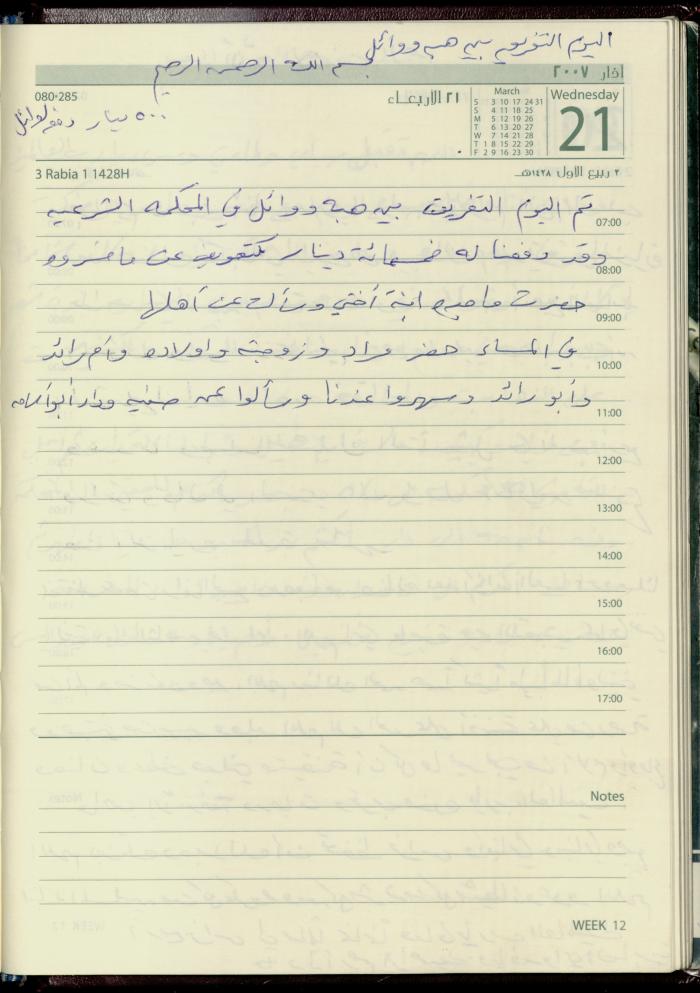 اليوم التفريق بين هبه ووائل
بسم الله الرحمن الرحيم
اذار ٢٠٠٧
080-285
٢١ الأربعـاء
March
Wednesday
21
S 3 10 17 24 31
S 4 11 18 25
M 5 12 19 26
T 6 13 20 27
W 7 14 21 28
T 1 8 15 22 29
F 2 9 16 23 30
٥٠٠ دينار دفع لوائل
3 Rabia 1 1428H
٢ ربيع الاول ١٤٢٨هـ
تم اليوم التفريق بين هبه ووائل في المحكمه الشرعيه
07:00
وقد دفعنا له خمسمائة دينار كتعويض عن ما خسروه
08:00
حضرت ماجده ابنة أختي وسألت عن أهلها
09:00
في المساء حضر مراد وزوجته واولاده وأم رائد
10:00
وأبو رائد وسهروا عندنا وسألوا عن صفيه ودار أبو أسامه
11:00
12:00
13:00
14:00
15:00
16:00
17:00
Notes
WEEK 12